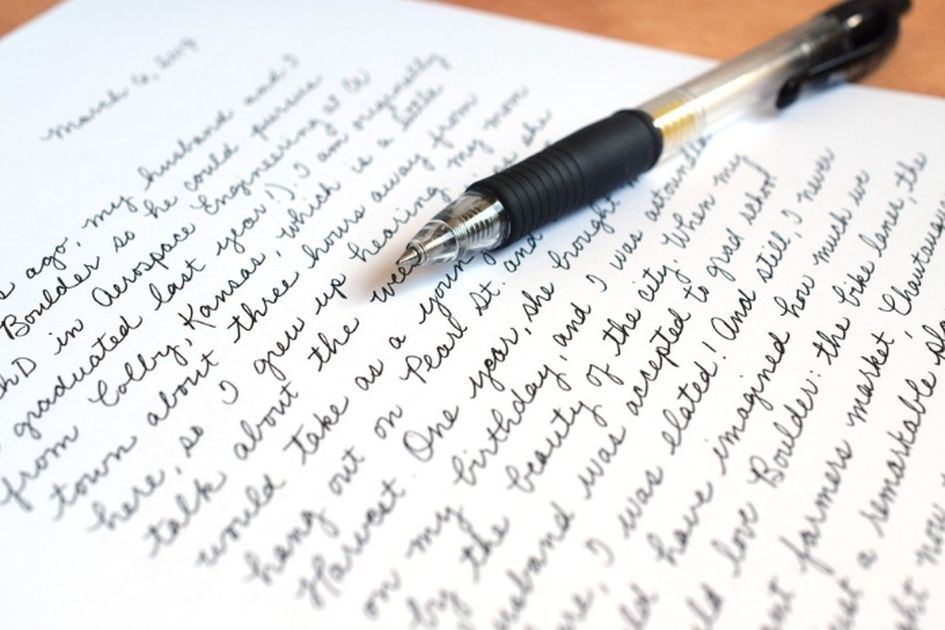 March 6,
ago, my husband and I
Boulder so he could pursue
PhD in Aerospace Engineering at
graduated last year!). I am originally
from Colby, Kansas, which is a little
town about three hours away from
here, so I grew up hearing my mom
talk about the she
would take as a young and
hang out on Pearl St. and
Harvest. One year, she brought
on my birthday, and I was astounded
by the beauty of the city. When my
husband was accepted to grad school
I was elated! And still, I never
have imagined how much we
love Boulder: the bike lanes, the
farmers market, Chautauqua
a remarkable
now